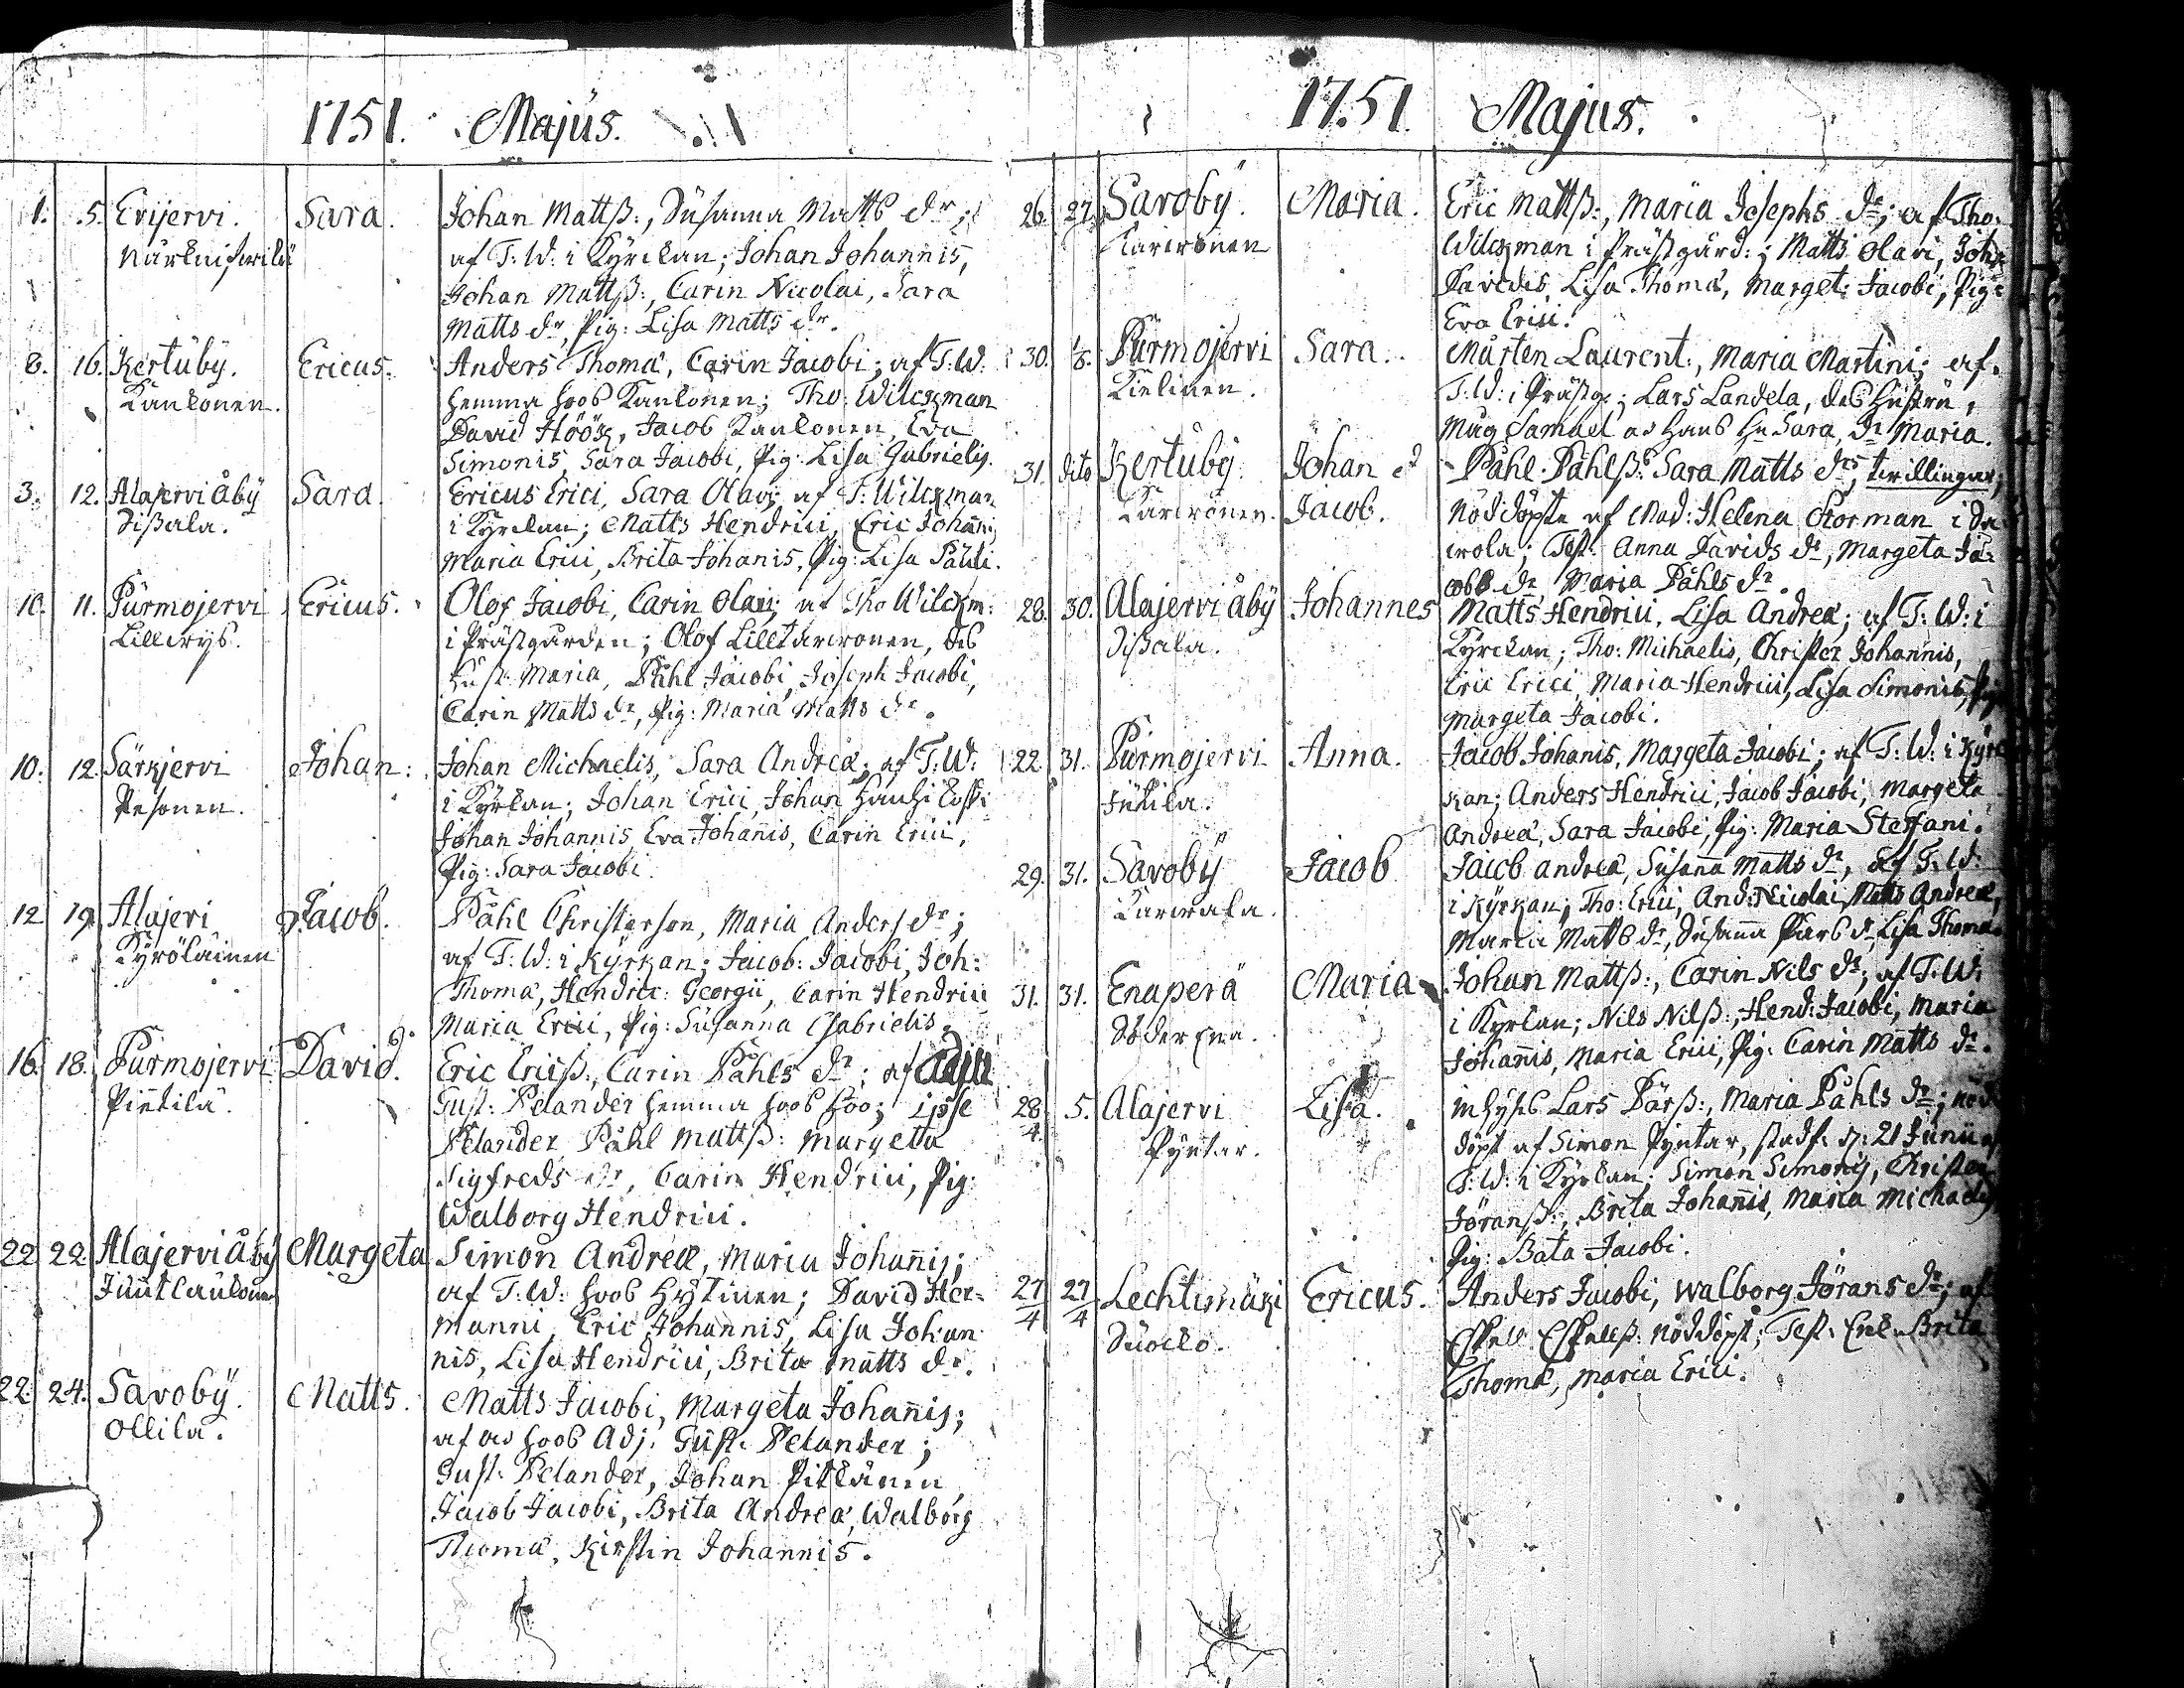 1751. Majus.
1. 5. Evijervi. Sara. Johan Mattß:, Susanna Matts dr;
af T: W: i Kyrckan; Johan Johannis,
Johan Mattß:, Carin Nicolai, Sara
Matts dr, Pig: Lisa Matts dr.
8. 16. Kertuby. Ericus. Anders Thomæ, Carin Jacobi; af T: W:
Kaukonen. hemma hoos Kaukonen; Tho: Wilckman
David Höök, Jacob Kaukonen, Eva
Simonis, Sara Jacobi, Pig: Lisa Gabrielis.
3. 12. Alajerviåby Sara. Ericus Erici, Sara Olavi; af T: Wilckman
Dißala. i Kyrckan; Matts Hendrici, Eric Johannis,
Maria Erici, Brita Johanis, Pig: Lisa Pauli.
10. 11. Purmojervi Ericus. Olof Jacobi, Carin Olavi; af Tho Wilckm:
i Prästgården; Olof
Hust: Maria, Påhl Jacobi, Joseph Jacobi,
Carin Matts dr, Pig: Maria Matts dr.
10. 12. Särkjervi Johan: Johan Michaelis, Sara Andreæ; af T: W:
Pesonen. i Kyrkan; Johan Erici, Johan
Johan Johannis, Eva Johanis, Carin Erici,
Pig: Sara Jacobi.
12 19. Alajeri Jacob. Påhl Christerson, Maria Anders dr;
Kyröläinen af T: W: i Kyrkan; Jacob: Jacobi, Joh:
Thomæ, Hendric: Georgii, Carin Hendrici
Maria Erici, Pig: Susanna Gabrielis.
16. 18. Purmojervi David. Eric Ericß:, Carin Påhls dr; af Adju
Pietilä. Gust: Pelander hemma hoos hoo; ipse
Pelander, Påhl Mattß: Margetta
Sigfreds dr, Carin Hendrici, Pig:
Walborg Hendrici.
22 22 Alajerviåby Margeta Simon Andreæ, Maria Johannis;
af T: W: hoos Hytinen; David Her=
manni, Eric Johannis, Lisa Johan
nis, Lisa Hendrici, Brita Matts dr.
22. 24. Savoby. Matts. Matts Jacobi, Margeta Johannis;
Ollila. af hoos Adj: Gust: Pelander;
Gust: Pelander, Johan Pitkänen,
Jacob Jacobi, Brita Andreæ, Walborg
Thomæ, Kirstin Johannis.
1751. Majus.
26. 27. Savoby. Maria. Eric Mattß:, Maria Josephs dr; af Tho:
Wilckman i Prästgård: ; Matts Olavi, Joha
Davidis, Lisa Thomæ, Marget: Jacobi, Pig:
Eva Erici.
30. Purmojervi Sara. Mårten Laurent:, Maria Martini; af
Kielinen. T: W: i Prästg:; Lars Landela, des hustru,
Samuel Sara, dr Maria.
31. dito Kertuby. Johan et Påhl Påhlß: Sara Matts dr, twillingar;
Jacob. Nöddöpte af Mad: Helena Forman i Sa
wola; Test: Anna Davids dr, Margeta Ja=
cobs dr Maria Påhls dr.
28. 30. Alajerviåby Johannes Matts Hendrici, Lisa Andreæ; af T: W: i
Dißala. Kyrckan; Tho: Michaelis, Christer Johannis,
Eric Erici, Maria Hendrici, Lisa Simonis, Pig
Margeta Jacobi.
22 31. Purmojervi Anna. Jacob Johanis, Margeta Jacobi; af T: W: i Kyrc
Jutila. kan; Anders Hendrici, Jacob Jacobi, Margeta
Andreæ, Sara Jacobi, Pig: Maria Steffani.
29. 31. Savoby Jacob Jacob Andreæ, Susanna Matts dr, af T: W:
i Kyrkan; Tho: Erici, And: Nicolai, Matts Andreæ,
Maria Matts dr, Susanna Pärs dr Lisa Thomæ.
31. 31. Enaperä Maria Johan Mattß:, Carin Nils dr; af T: W:
Söder Ena. i Kyrkan; Nils Nilß:, Hend: Jacobi, Maria
Johannis, Maria Erici, Pig: Carin Matts dr.
28/4. 5. Alajervi Lisa. Inhyses Lars Pärß:, Maria Påhls dr; nöd
Pyntar. döpt af Simon Pyntar, stadf: d: 21 Junii af
T: W: i Kyrkan; Simon Simonis, Christer
Jöranß:, Brita Johannis, Maria Michaelis,
Pig: Beata Jacobi.
27/4 27/4 Lechtimäki Ericus. Anders Jacobi, Walborg Jörans dr; af
Suocko. Eskell Eskellß: nöddöpt; Test: Brita
Thomæ, Maria Erici.